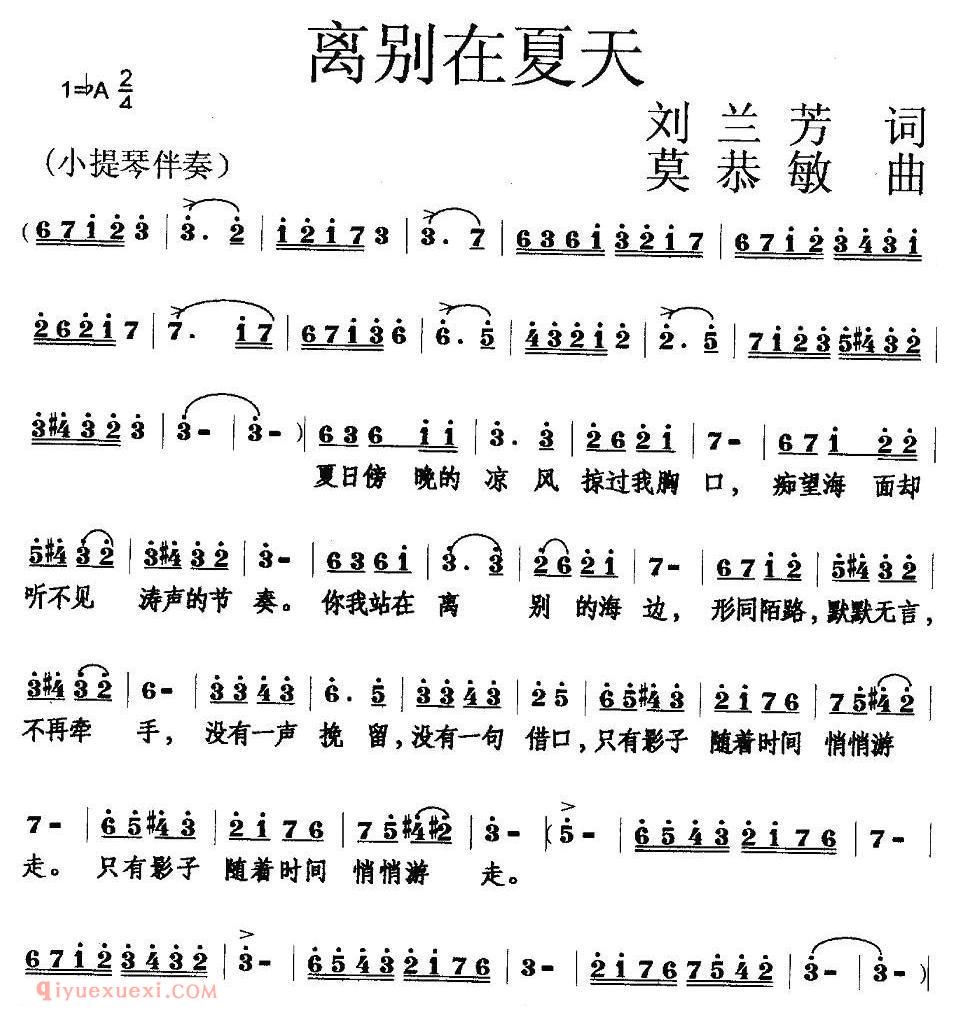 离别在夏天
1=♭A 2/4
刘兰芳 词
(小提琴伴奏)
莫恭敏 曲
( 6 7 i 2 3 | 3. 2 | i 2 i 7 3 | 3. 7 | 6 3 6 i 3 2 i 7 | 6 7 i 2 3 4 3 i |
2 6 2 i 7 | 7. i 7 | 6 7 i 3 6 | 6. 5 | 4 3 2 i 2 | 2. 5 | 7 i 2 3 5 #4 3 2 |
3 #4 3 2 3 | 3 - | 3 - ) | 6 3 6 i i | 3. 3 | 2 6 2 i | 7 - | 6 7 i 2 2 |
夏日傍 晚的 凉 风 掠过我胸 口， 痴望海 面却
5 #4 3 2 | 3 #4 3 2 | 3 - | 6 3 6 i | 3. 3 | 2 6 2 i | 7 - | 6 7 i 2 | 5 #4 3 2 |
听不见 涛声的节 奏。 你我站在 离 别 的海 边， 形同陌路，默默无言，
3 #4 3 2 | 6 - | 3 3 4 3 | 6. 5 | 3 3 4 3 | 2 5 | 6 5 #4 3 | 2 i 7 6 | 7 5 #4 2 |
不再牵 手， 没有一声 挽 留，没有一句 借口，只有影子 随着时间 悄悄游
7 - | 6 5 #4 3 | 2 i 7 6 | 7 5 #4 #2 | 3 - | ( 5 - | 6 5 4 3 2 i 7 6 | 7 - |
走。 只有影子 随着时间 悄悄游 走。
6 7 i 2 3 4 3 2 | 3 - | 6 5 4 3 2 i 7 6 | 3 - | 2 i 7 6 7 5 4 2 | 3 - | 3 - )
qiyuexuexi.com